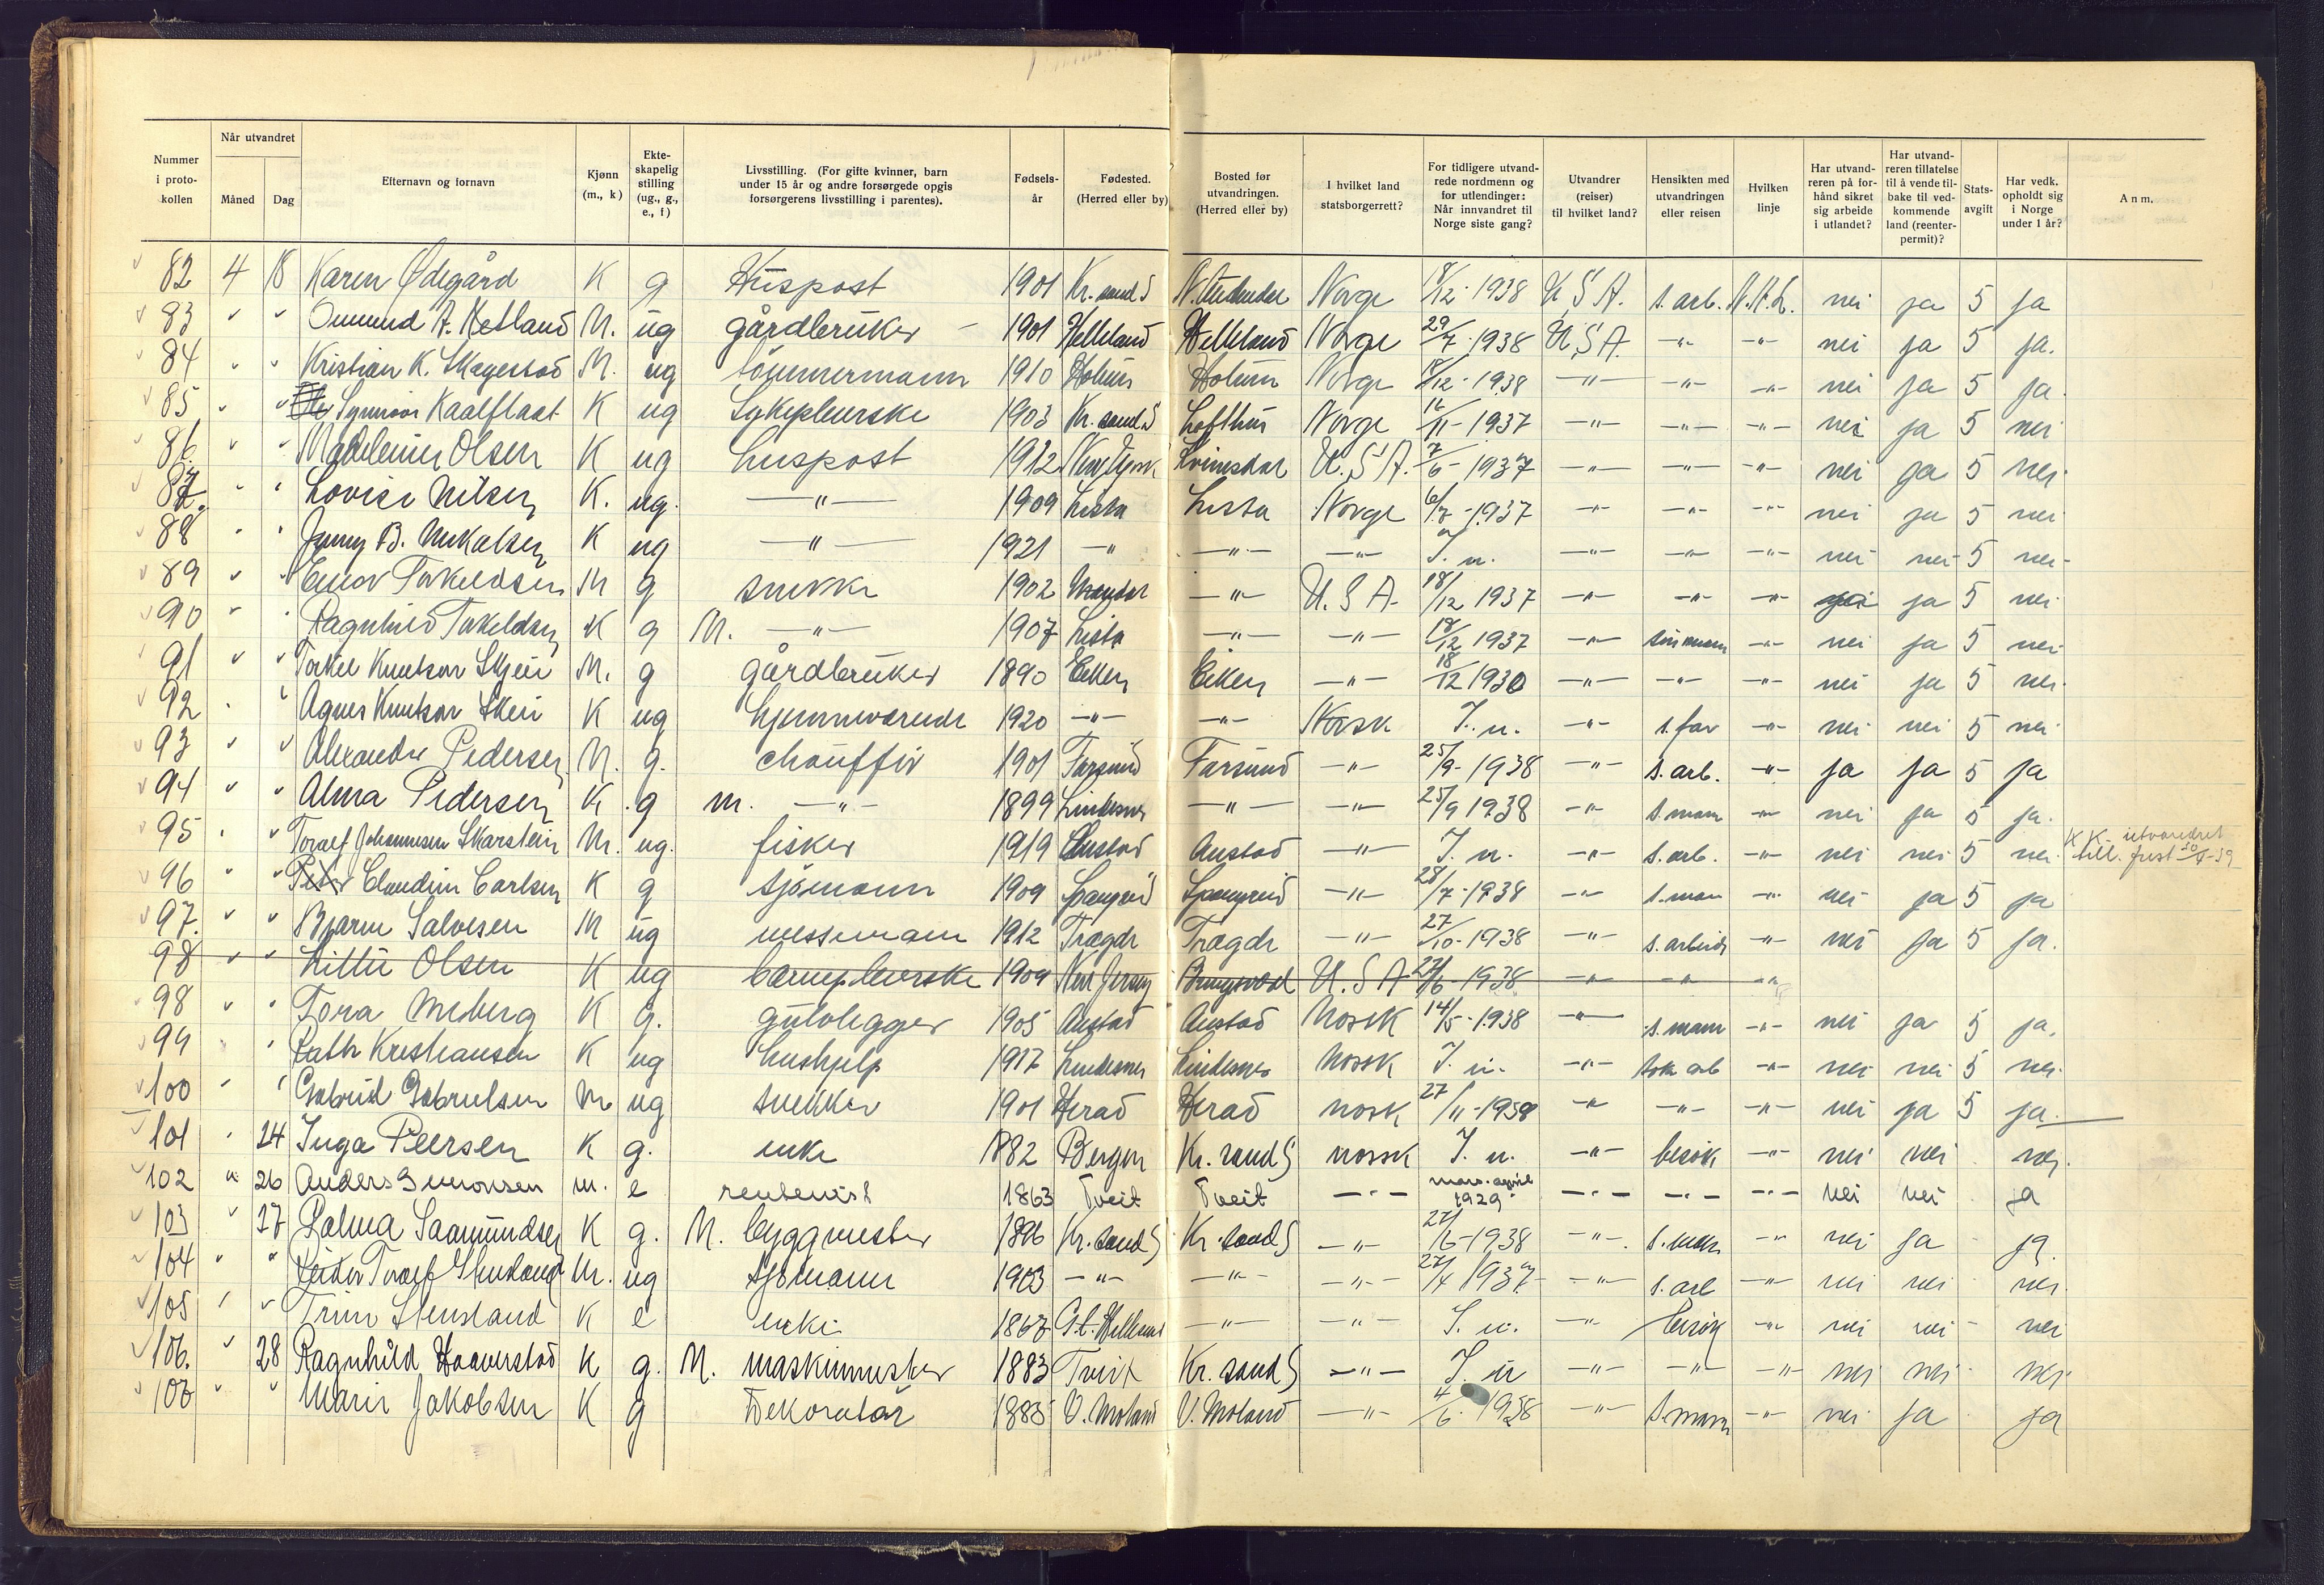 Nummer i protokollen | Når utvandret Måned | Dag | Efternavn og fornavn | Kjønn (m., k) | Ekteskapelig stilling (ug., g., e., f) | Livsstilling. (For gifte kvinner, barn under 15 år og andre forsørgede opgis forsørgerens livsstilling i parentes). | Fødselsår | Fødested. (Herred eller by) | Bosted før utvandringen. (Herred eller by) | I hvilket land statsborgerrett? | For tidligere utvandrede nordmenn og for utlendinger: Når innvandret til Norge siste gang? | Utvandrer (reiser) til hvilket land? | Hensikten med utvandringen eller reisen | Hvilken linje | Har utvandreren på forhånd sikret sig arbeide i utlandet? | Har utvandreren tillatelse til å vende tilbake til vedkommende land (reenterpermit)? | Statsavgift | Har vedk. opholdt sig i Norge under 1 år? | Anm.
82 4 18 Karen Ødegård K g Huspost 1901 Kr.sand S Norge 18/12-1938 U.S.A. s. arb. N.A.L. nei ja 5 ja
83 " " Ommund A. Ketland M. ug gårdbruker 1901 Helleland Helleland Norge 29/7-1938 U.S.A. -"- -"- nei ja 5 ja.
84 " " Kristian K. M. ug tömmermann 1910 Holum Holum Norge 18/12-1938 -"- -"- -"- nei ja 5 ja.
85 " " Synnöv Kaalflaat K ug Sykepleierske 1903 Kr.sand S Lofthus Norge 12/11-1937 -"- -"- -"- nei ja 5 nei
86 " " Olsen K ug huspost 1912 New York Kvinesdal U.S.A. 7/6-1937 -"- -"- -"- nei ja 5 nei
87. " " Lovise Nilsen K. ug. -"- 1909 Lista Lista Norge 6/7-1937 -"- -"- -"- nei ja 5 nei
88 " " Jenny B. Mikalsen K ug -"- 1921 -"- -"- -"- I. u. -"- -"- -"- nei nei 5 nei
89 " " Einar Torkeldsen M g snekker 1902 Mandal -"- U.S.A. 18/12 1937 -"- -"- -"- ja 5 nei
90 " " Ragnhild Torkeldsen K g M. -"- 1907 Lista -"- -"- 18/12 1937 -"- sin mann -"- nei ja 5 nei
91 " " Torkel Knutson Skjeie M. g gårdbruker 1890 Eiken Eiken -"- 18/12 1930 -"- -"- -"- nei ja 5 nei
92 " " Agnes Knutson Skeie K ug hjemmeværende 1920 -"- -"- Norsk I. u. -"- s. far -"- nei nei 5 nei
93 " " Alexander Pedersen M. g. chauffør 1901 Farsund Farsund -"- 25/9-1938 -"- s. arb. -"- ja ja 5 ja
94 " " Alma Pedersen K. g m. -"- 1899 Lindesnes -"- -"- 25/9 1938 -"- s. mann -"- nei ja 5 ja.
95 " " Toralf Johannesen Skarstein M. ug. fisker 1919 Austad Austad -"- I. u. -"- s. arb. -"- nei nei 5 nei utvandret till. frist
96 " " Peter Claudine Carlsen K g sjömann 1909 Spangreid Spangreid -"- 28/7-1938 -"- s. mann -"- nei ja 5 ja
97. " " Bjarne Salvesen M ug messemann 1912 Tregde Tregde -"- 27/10-1938 -"- s. arbeid -"- nei ja 5 ja.
98 " " Olsen K ug barnepleierske 1909 New Jersey U.S.A 27/6-1938 -"- -"- -"-
98 " " Tora Meberg K g. gulvlegger 1905 Austad Austad Norsk 14/5-1938 -"- s. mann -"- nei ja 5 ja.
99 " " Kristiansen K ug hushjelp 1917 Lindesnes Lindesnes Norsk I. u. -"- søke arb -"- nei nei 5 nei
100 " " Gabriel Gabrielsen M ug snekker 1901 Herad Herad norsk 27/11-1938 -"- -"- -"- nei ja 5 ja.
101 " 24 Inga Peersen K g. enke 1882 Bergen Kr. sand S norsk I. u. -"- besök -"- nei nei nei.
102 " 26 Anders Simonsen m. e rentenist 1863 Tveit Tveit -"- mars-april 1929 -"- -"- -"- nei nei ja
103 " 27 Palma Saamundsen K g. M. byggmester 1896 Kr. sand S Kr. sand S -"- 27/6-1938 -"- s. mann -"- nei ja ja.
104 " " Toralf M. ug sjömann 1903 -"- -"- -"- 27/4 1937 -"- s. arb -"- nei nei nei.
105 " " Trine Stensland K e enke 1867 -"- -"- I. u. -"- besök -"- nei nei nei
106. " 28 Ragnhild Haaverstad K g. M. maskinmester 1883 Tveit Kr. sand S -"- I. u -"- -"- -"- nei nei nei
107 " " Marie Jakobsen K g Dekoratør 1885 V. Moland V. Moland -"- 4/6-1938 -"- s. mann -"- nei ja ja